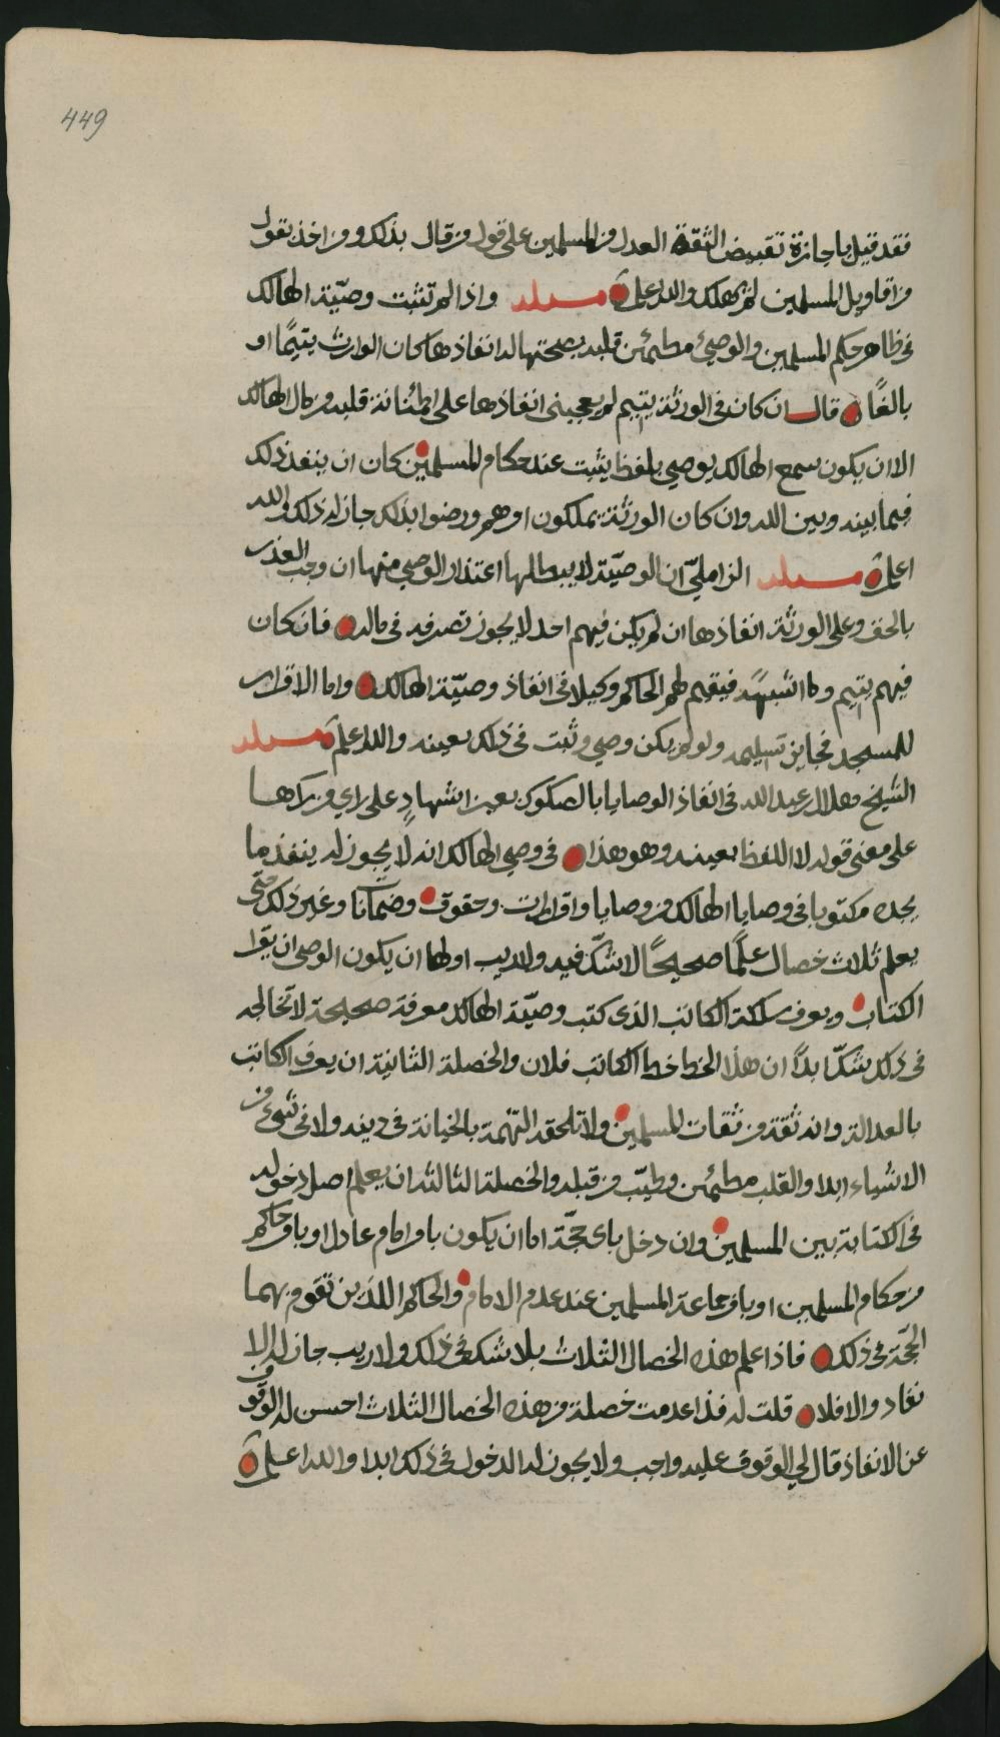 449
فقد قيل باجازة تقبيض الثقة العدل من المسلمين على قول من قال بذلك ومن اخذ بقول
من اقاويل المسلمين لم يهلك والله اعلم مسئلة واذا لم تثبت وصيّة الهالك
في ظاهر حكم المسلمين والوصيّ مطمئن قلبه بصحتها اله انفاذها كان الوارث يتيمًا او
بالغًا قال ان كان في الورثة يتيم لم يعجبني انفاذها على اطمئنانة قلبه من مال الهالك
الا ان يكون سمع الهالك يوصي بلفظ يثبت عند حكام المسلمين كان ان ينفذ ذلك
فيما بينه وبين الله وان كان الورثة يملكون امرهم ورضوا بذلك جاز له ذلك والله
اعلم مسئلة الزامليّ ان الوصيّة لا يبطلها اعتذار الوصي منها ان وجب العذر
بالحق وعلى الورثة انفاذها ان لم يكن فيهم احد لا يجوز تصرفه في ماله فان كان
فيهم يتيم وما اشبهه فيقيم لهم الحاكم وكيلا في انفاذ وصيّة الهالك واما الاقرار
للمسجد فجايز تسليمه ولو لم يكن وصي وثبت في ذلك بعينه والله اعلم مسئلة
الشيخ هلال بن عبد الله في انفاذ الوصايا بالصكوك بغير اشهادٍ على راي من راها
على معنى قوله لا اللفظ بعينه وهو هذا في وصي الهالك انه لا يجوز له ينفذ ما
يجده مكتوبا في وصايا الهالك من وصايا واقرارات وحقوق وضمانات وغير ذلك حتى
يعلم ثلاث خصال علمًا صحيحًا لا شكّ فيه ولا ريب اولها ان يكون الوصي ان يقرا
الكتاب ويعرف سلكة الكاتب الذي كتب وصيّة الهالك معرفة صحيحة لا تخالجه
في ذلك شكّ ابدًا ان هذا الخط خط الكاتب فلان والخصلة الثانية ان يعرف الكاتب
بالعدالة وانه ثقة من ثقات المسلمين ولا تلحقه التهمة بالخيانة في دينه ولا في شيء من
الاشياء ابدا والقلب مطمئن وطيّب من قبله والخصلة الثالثة ان يعلم اصل دخوله
في الكتابة بين المسلمين وان دخل باي حجّة اما ان يكون بامر امام عادل او بامر حاكم
من حكام المسلمين او بامر جماعة المسلمين عند عدم الامام والحاكم اللذين تقوم بهما
الحجّة في ذلك فاذا علم هذه الخصال الثلاث بلا شك في ذلك ولا ريب جاز له الا
نفاد والا فلا قلت له فاذا عدمت خصلة من هذه الخصال الثلاث احسن له الوقوف
عن الانفاذ قال لي الوقوف عليه واجب ولا يجوز له الدخول في ذلك ابدا والله اعلم